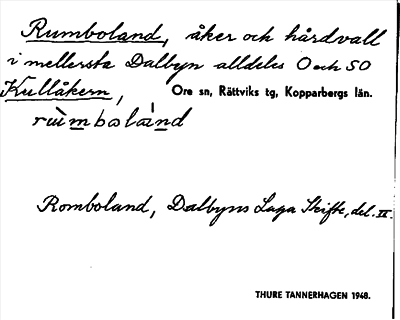 Rumboland, åker och hårdvall
i mellersta Dalbyn alldeles O och SO
Kullåkern,
Ore sn, Rättviks tg, Kopparbergs län.
rùmbolánd
Romboland, Dalbyns Laga Skifte, del. II.
THURE TANNERHAGEN 1948.